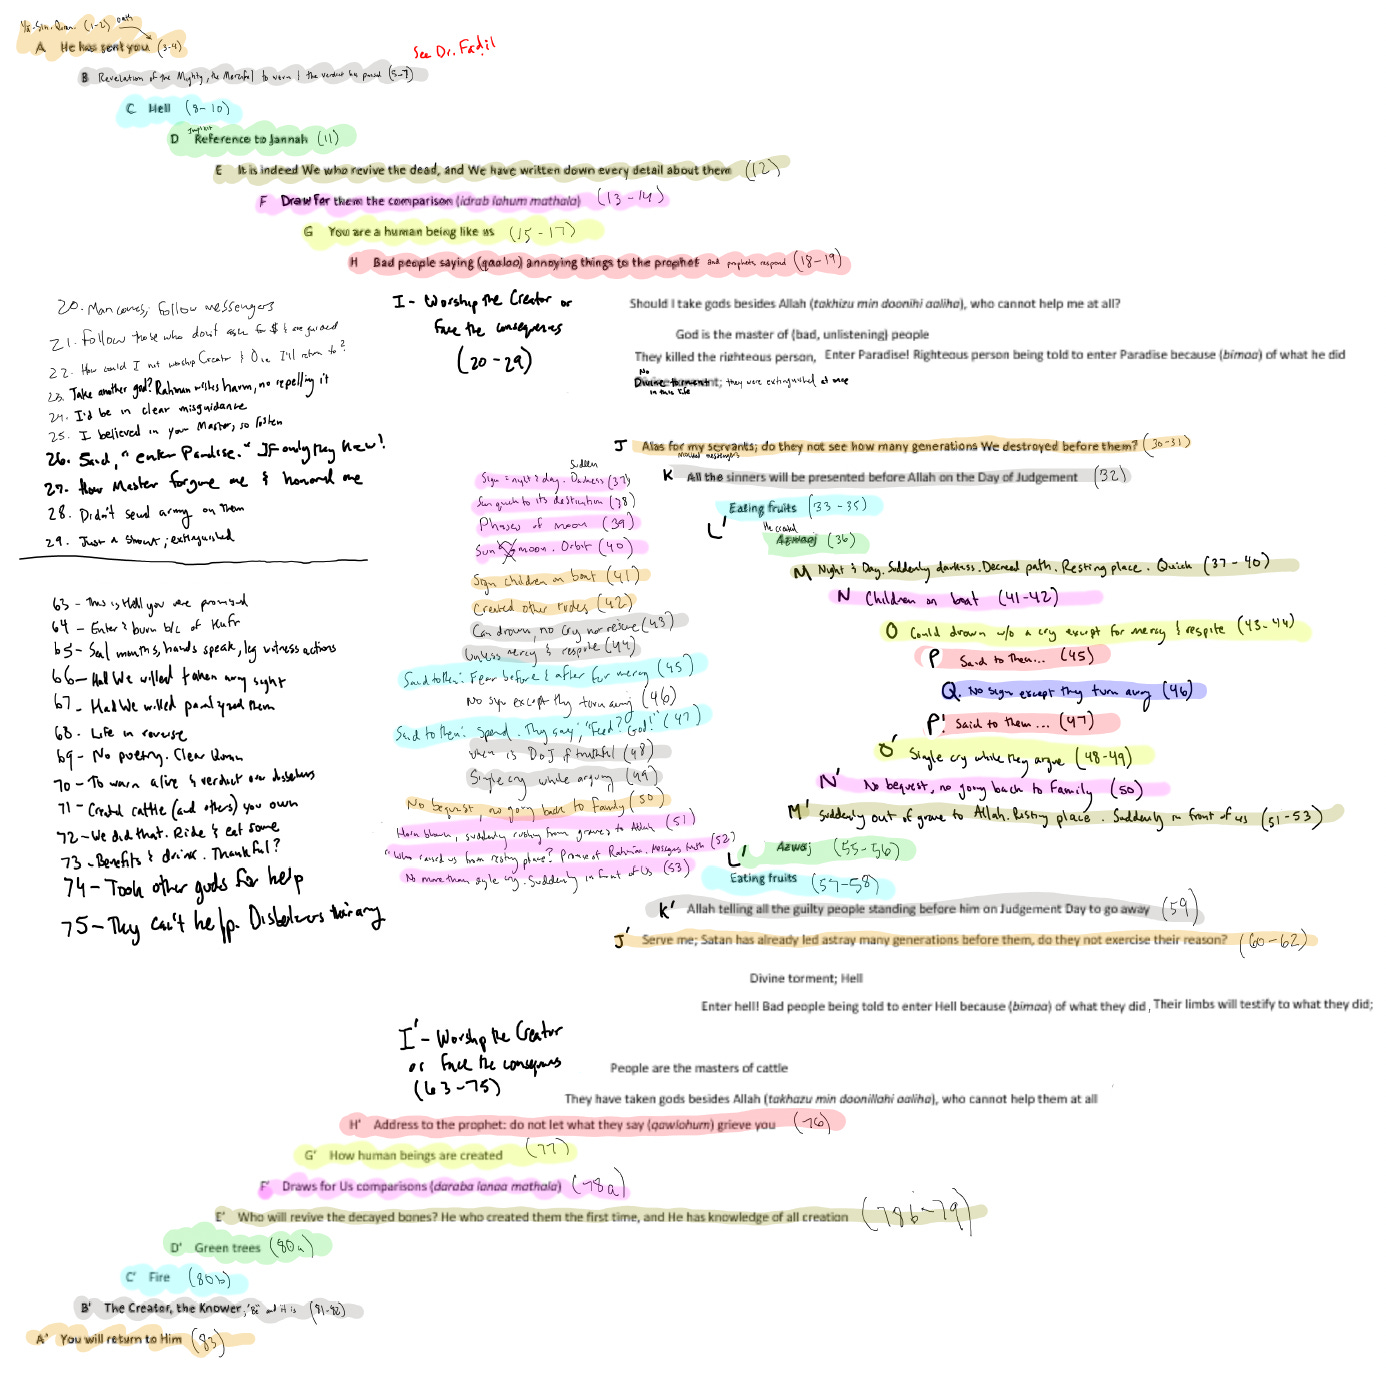 Ya-Sin. Quran. (1-2) oath
A He has sent you (3-4)
See Dr. Fadil
B Revelation of the Mighty, the Merciful to warn & the verdict has passed (5-7)
C Hell (8-10)
Implicit
D Reference to Jannah (11)
E It is indeed We who revive the dead, and We have written down every detail about them (12)
F Draw for them the comparison (idrab lahum mathala) (13-14)
G You are a human being like us (15-17)
H Bad people saying (qaaloo) annoying things to the prophet and prophets respond (18-19)
I - Worship the Creator or
face the consequences
(20-29)
Should I take gods besides Allah (takhizu min doonihi aaliha), who cannot help me at all?
God is the master of (bad, unlistening) people
They killed the righteous person, Enter Paradise! Righteous person being told to enter Paradise because (bimaa) of what he did
No
Divine torment; they were extinguished at once
in this life
20. Man comes; follow messengers
21. Follow those who don't ask for $ & are guided
22. How could I not worship Creator & One I'll return to?
23. Take another god? Rahman wishes harm, no repelling it
24. I'd be in clear misguidance
25. I believed in your Master, so listen
26. Said, "enter Paradise." If only they knew!
27. How Master forgave me & honored me
28. Didn't send army on them
29. Just a shout; extinguished
63 - This is Hell you were promised
64 - Enter & burn b/c of Kufr
65 - Seal mouths, hands speak, leg witness actions
66 - Had We willed taken away sight
67 - Had We willed paralyzed them
68. Life in reverse
69 - No poetry. Clear Quran
70 - To warn alive & verdict on disbelievers
71 - Created cattle (and others) you own
72 - We did that. Ride & eat some
73 - Benefits & drinks. Thankful?
74 - Took other gods for help
75 - They can't help. Disbelievers their army
Sudden
Sign = night & day. Darkness (37)
Sun quick to its destination (38)
Phases of moon (39)
Sun moon. Orbit (40)
Sign children on boat (41)
Created other rides (42)
Can drown, no cry nor rescue (43)
Unless mercy & respite (44)
Said to them: Fear before & after for mercy (45)
No sign except they turn away (46)
Said to them: Spend. They say, "Feed? God!" (47)
When is DoJ if truthful (48)
Single cry while arguing (49)
No bequest, no going back to family (50)
Horn blown, suddenly rushing from graves to Allah (51)
"Who raised us from resting place? Promise of Rahman. Messengers truth (52)
No more than single cry. Suddenly in front of Us (53)
J Alas for my servants; do they not see how many generations We destroyed before them? (30-31)
Mocked messengers
K All the sinners will be presented before Allah on the Day of Judgement (32)
Eating fruits (33-35)
L'
He created
Azwaj (36)
M Night & Day. Suddenly darkness. Decreed path. Resting place. Quick (37-40)
N Children on boat (41-42)
O Could drown w/o a cry except for mercy & respite (43-44)
P Said to them... (45)
Q. No sign except they turn away (46)
P' Said to them... (47)
O' Single cry while they argue (48-49)
N' No bequest, no going back to family (50)
M' Suddenly out of grave to Allah. Resting place. Suddenly in front of us (51-53)
Azwaj (55-56)
L'
Eating fruits (57-58)
K' Allah telling all the guilty people standing before him on Judgement Day to go away (59)
J' Serve me; Satan has already led astray many generations before them, do they not exercise their reason? (60-62)
Divine torment; Hell
Enter hell! Bad people being told to enter Hell because (bimaa) of what they did, Their limbs will testify to what they did;
I' - Worship the Creator
or face the consequences
(63-75)
People are the masters of cattle
They have taken gods besides Allah (takhazu min doonillahi aaliha), who cannot help them at all
H' Address to the prophet: do not let what they say (qawlohum) grieve you (76)
G' How human beings are created (77)
F' Draws for Us comparisons (daraba lanaa mathala) (78a)
E' Who will revive the decayed bones? He who created them the first time, and He has knowledge of all creation (78b-79)
D' Green trees (80a)
C' Fire (80b)
B' The Creator, the Knower, 'Be' and it is (81-82)
A' You will return to Him (83)